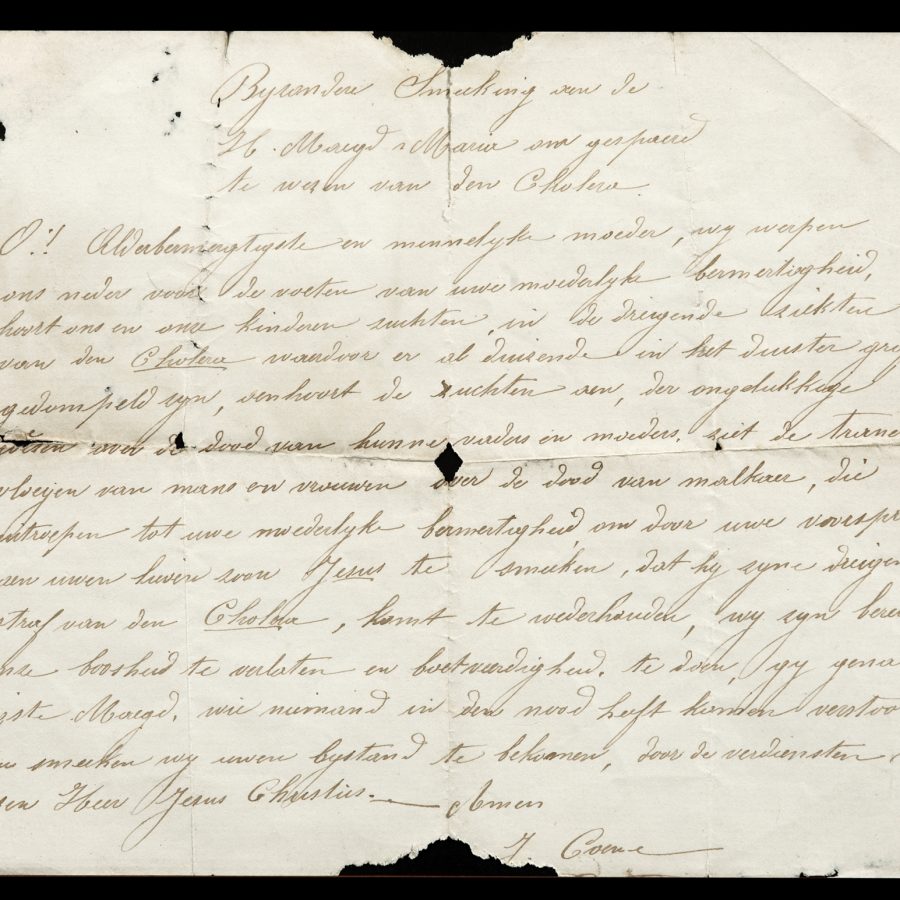 Byzondere Smeeking aen de
H. Maegd Maria om gespaerd
te wezen van den Cholera.
O!! Alderbermertigste en minnelyke moeder, wy werpen
ons neder voor de voeten van uwe moederlyke bermertigheid,
hoort ons en onse kinderen suchten, in de dreigende siekten
van den Cholera waerdoor er al duisende in het duister gra
gedompeld zyn, aenhoort de zuchten aen, der ongelukkige
weesen over de dood van hunne vaders en moeders. ziet de trane
vloeijen van mans en vrouwen over de dood van malkaer, die
uitroepen tot uwe moederlyke bermertigheid, om door uwe voorspr
uwen lieven zoon Jesus te smeeken, dat hy zyne dreigen
straf van den Cholera, komt te wederhouden, wy zyn berei
onze boosheid te verlaten en boetverdigheid. te doen, gy gena
Maegd. wie niemand in den nood heeft komen verstoo
smeeken wy uwen bystand te bekomen, door de verdiensten
Heer Jesus Christus. Amen
J. Coene